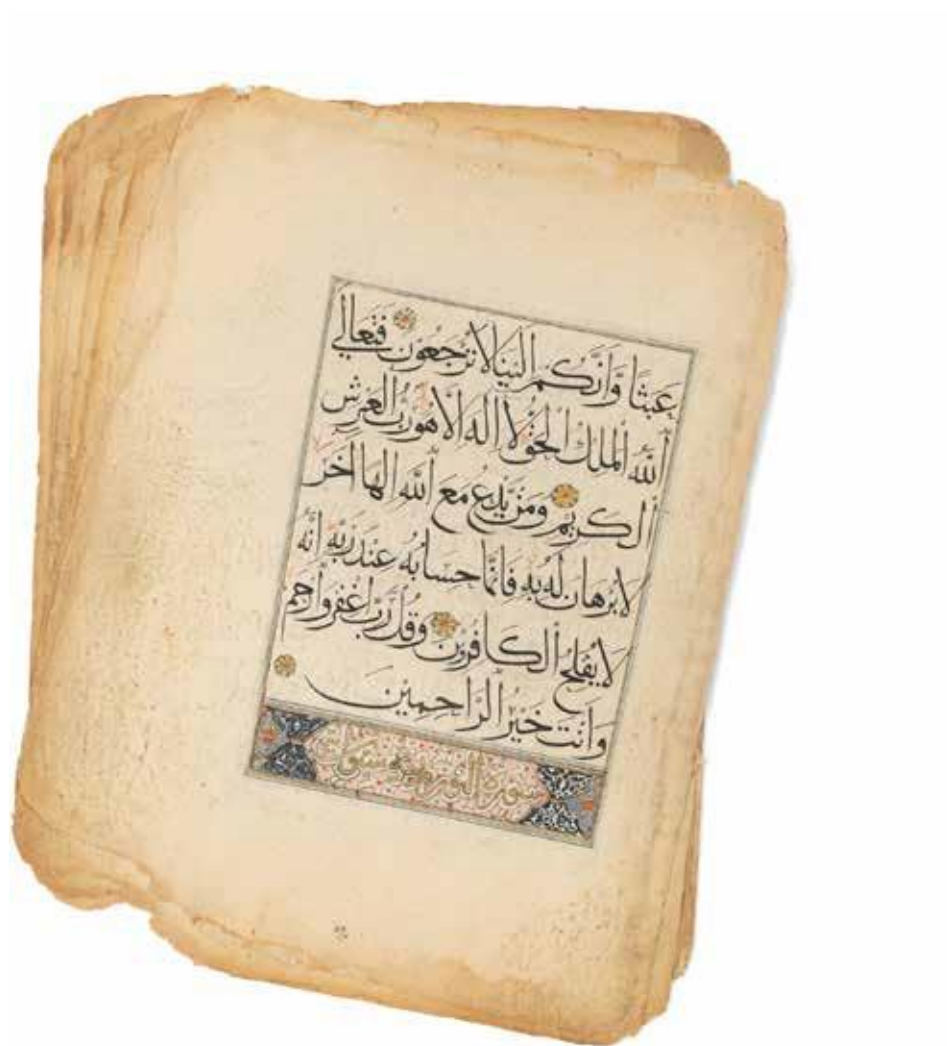 عَبَثًا وَّاَنَّكُم اِلَيْنَا لَا تُرْجَعُونَ فَتَعَالَى
اَللّٰهُ الْمَلِكُ الْحَقُّ لَا اِلٰهَ اِلَّا هُوَ رَبُّ الْعَرْشِ
الْكَرِيْمِ وَمَنْ يَّدْعُ مَعَ اللّٰهِ اِلٰهًا اٰخَرَ
لَا بُرْهَانَ لَهُ بِهِ فَاِنَّمَا حِسَابُهُ عِنْدَ رَبِّهِ اِنَّهُ
لَا يُفْلِحُ الْكَافِرُوْنَ وَقُلْ رَّبِّ اغْفِرْ وَارْحَمْ
وَاَنْتَ خَيْرُ الرَّاحِمِيْنَ
سورة النور